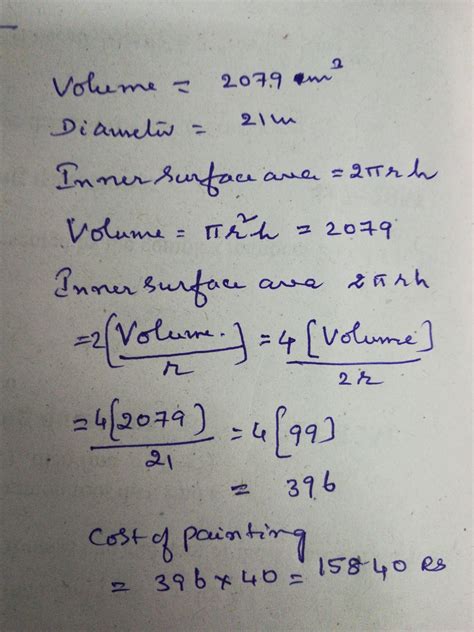 Volume = 2079 m²
Diameter = 21m
Inner surface area = 2πrh
Volume = πr²h = 2079
Inner surface area 2πrh
= 2(Volume.)/r = 4[Volume]/2r
= 4[2079]/21 = 4[99]
= 396
Cost of painting
= 396 x 40 = 15840 Rs